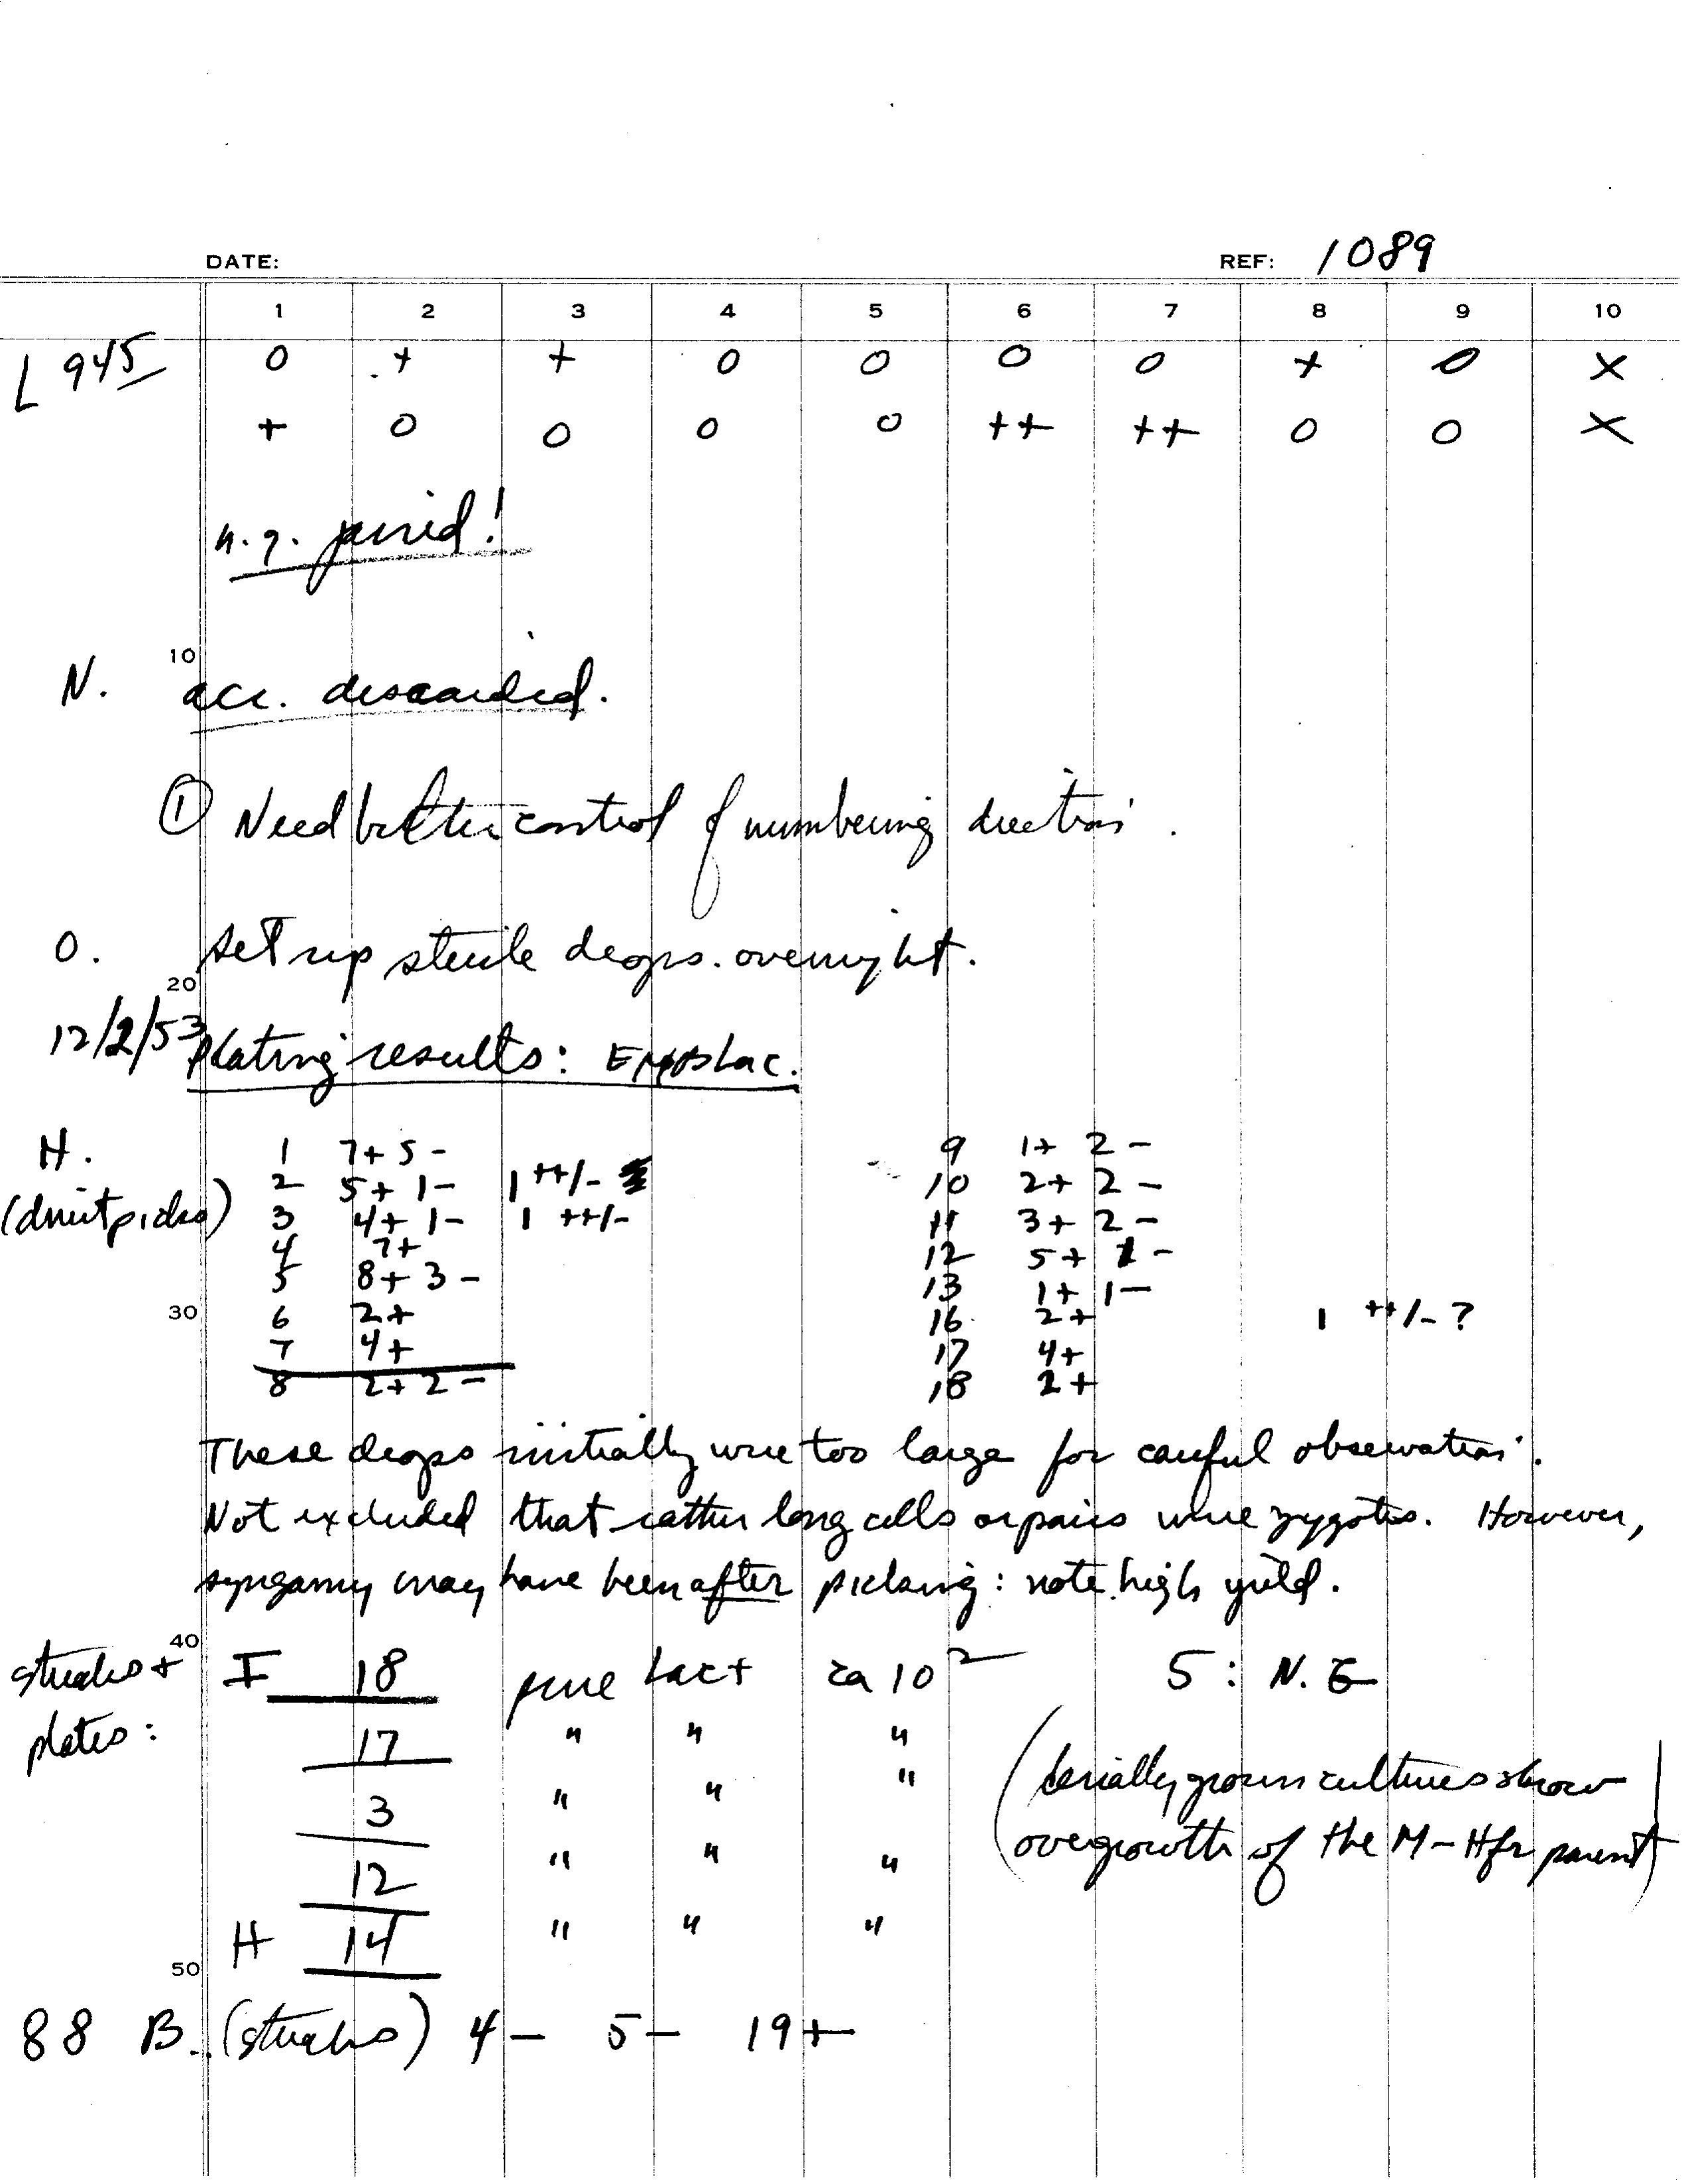 DATE: REF: 1089
1 2 3 4 5 6 7 8 9 10
L 945 0 + + 0 0 0 0 + 0 X
+ 0 0 0 0 ++ ++ 0 0 X
10
N. acc. discarded.
① Need better control of numbering direction.
O. Set up sterile drops. overnight.
20
12/2/53 Plating results: EMB Lac.
H. 1 7+ 5- 9 1+ 2-
2 5+ 1- 1 ++/- 10 2+ 2-
(direct picks) 3 4+ 1- 1 ++/- 11 3+ 2-
4 7+ 12 5+ 1-
5 8+ 3- 13 1+ 1-
30 6 2+ 16 2+ 1 ++/-?
7 4+ 17 4+
8 2+ 2- 18 2+
These drops initially were too large for careful observation.
Not excluded that rather long cells or pairs were zygotes. However,
syngamy may have been after picking: note high yield.
40
streaks + I 18 pure Lac+ ca 10² 5: N.G
plates: 17 " " "
3 " " " (serially grown cultures show
12 " " " overgrowth of the M- Hfr parent)
H 14 " " "
50
88 B. (streaks) 4- 5- 19+